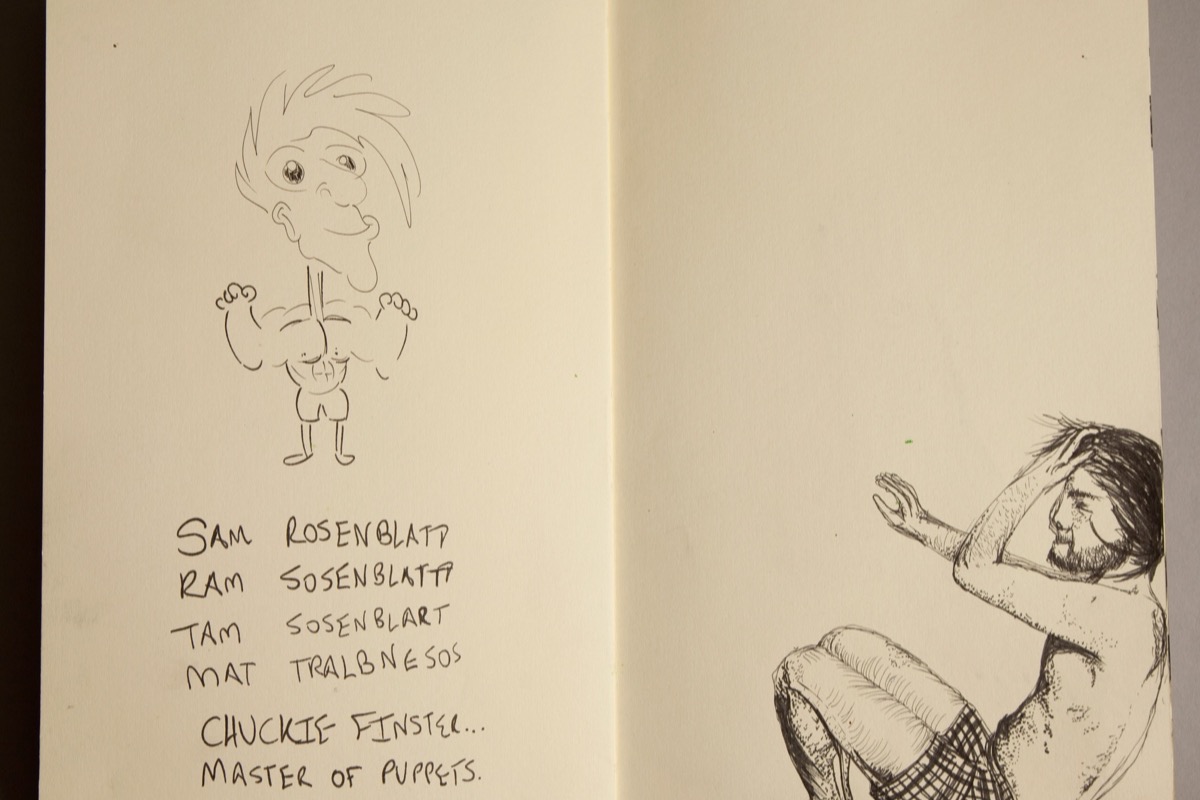 SAM ROSENBLATT
RAM SOSENBLATT
TAM SOSENBLART
MAT TRALBNESOS
CHUCKIE FINSTER...
MASTER OF PUPPETS.